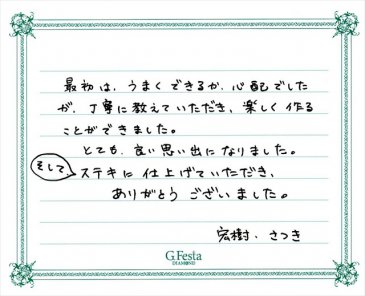 最初は、うまくできるか、心配でした
が、丁寧に教えていただき、楽しく作る
ことができました。
とても、良い思い出になりました。
そして ステキに仕上げていただき、
ありがとうございました。
宏樹・さつき
G.Festa
DIAMOND